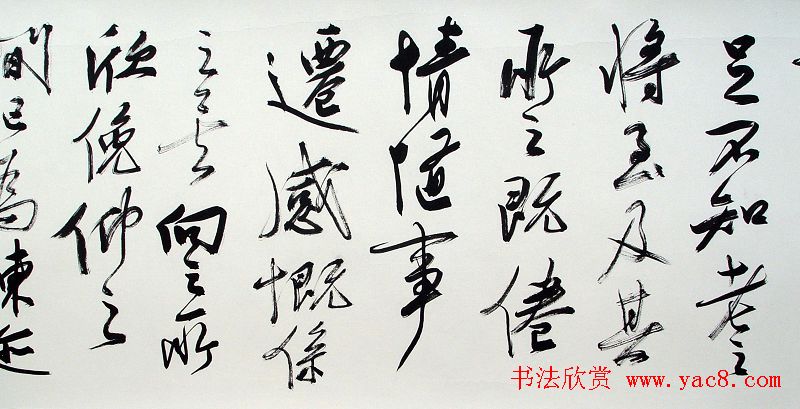 足不知老之
將至及其
所之既倦
情隨事
遷感慨係
之矣向之所
欣俛仰之
間已為陳迹
书法欣赏 www.yac8.com